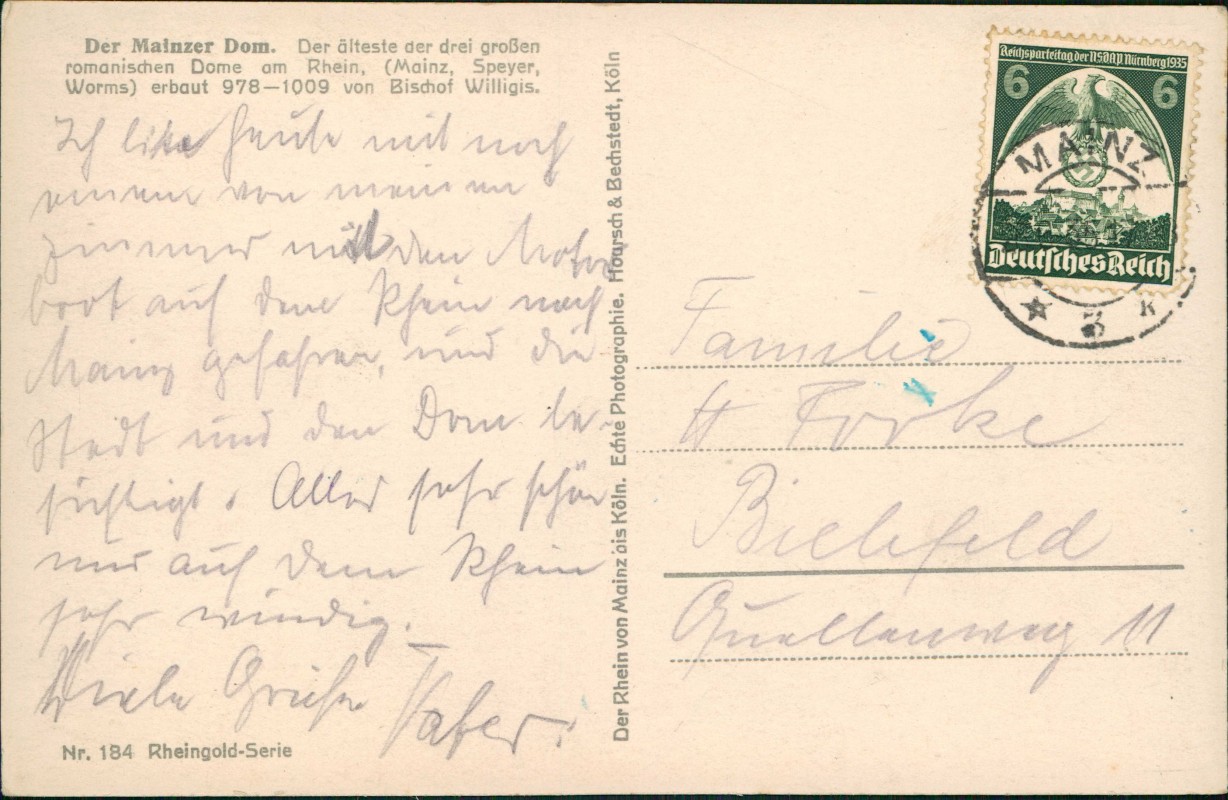 Der Mainzer Dom. Der älteste der drei großen
romanischen Dome am Rhein, (Mainz, Speyer,
Worms) erbaut 978—1009 von Bischof Willigis.
Ich heute mit noch
einem von meinem
Zimmer mit den Motor
boot auf dem Rhein nach
Mainz gefahren, und die
Stadt und den Dom be-
sichtigt. Alles sehr schön
nur auf dem Rhein
sehr windig.
Viele Grüße Vater.
Nr. 184 Rheingold-Serie
Der Rhein von Mainz bis Köln. Echte Photographie. Hoursch & Bechstedt, Köln
Reichsparteitag der NSDAP Nürnberg 1935
6 6
Deutsches Reich
MAINZ
* 3 K
Familie
H Forke
Bielefeld
Quellenweg 11